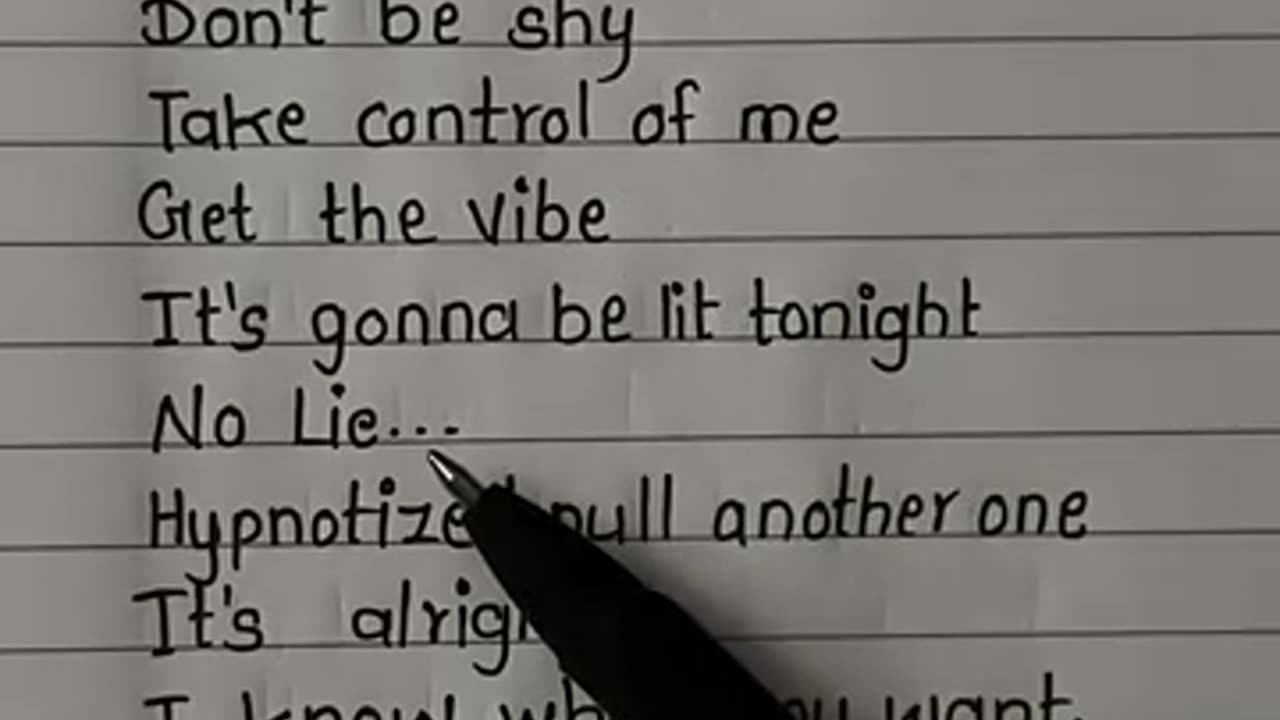 Don't be shy
Take control of me
Get the vibe
It's gonna be lit tonight
No Lie...
Hypnotize pull another one
It's
I know you want